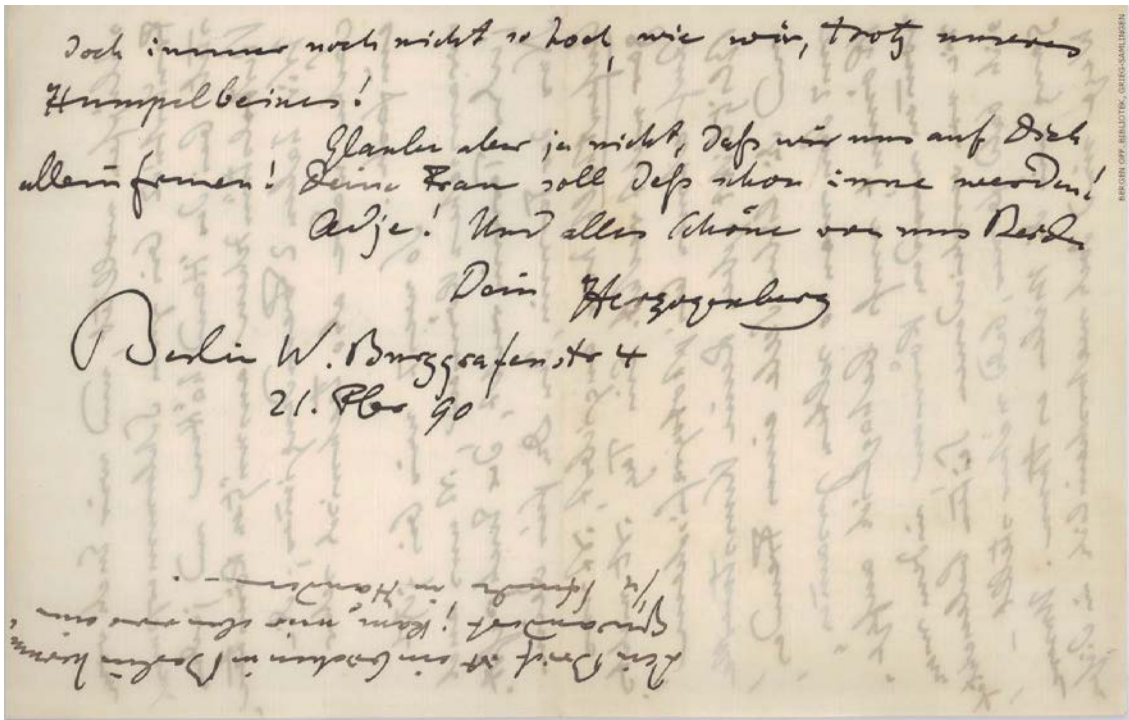 doch immer noch nicht so hoch, wie wir, trotz unseres
Humpelbeines!
Glaube aber ja nicht, daß wir uns auf Dich
allein freuen! Deine Frau soll deß schon inne werden!
Adje! Und alles Schöne von uns Beiden
Dein Herzogenberg
Berlin W. Burggrafenstr 4
21. 90
Dein Brief ist ein in Berlin
gewandert! kam nur
1/4 Stunde in Händen
BERGEN OFF. BIBLIOTEK, GRIEG-SAMLINGEN